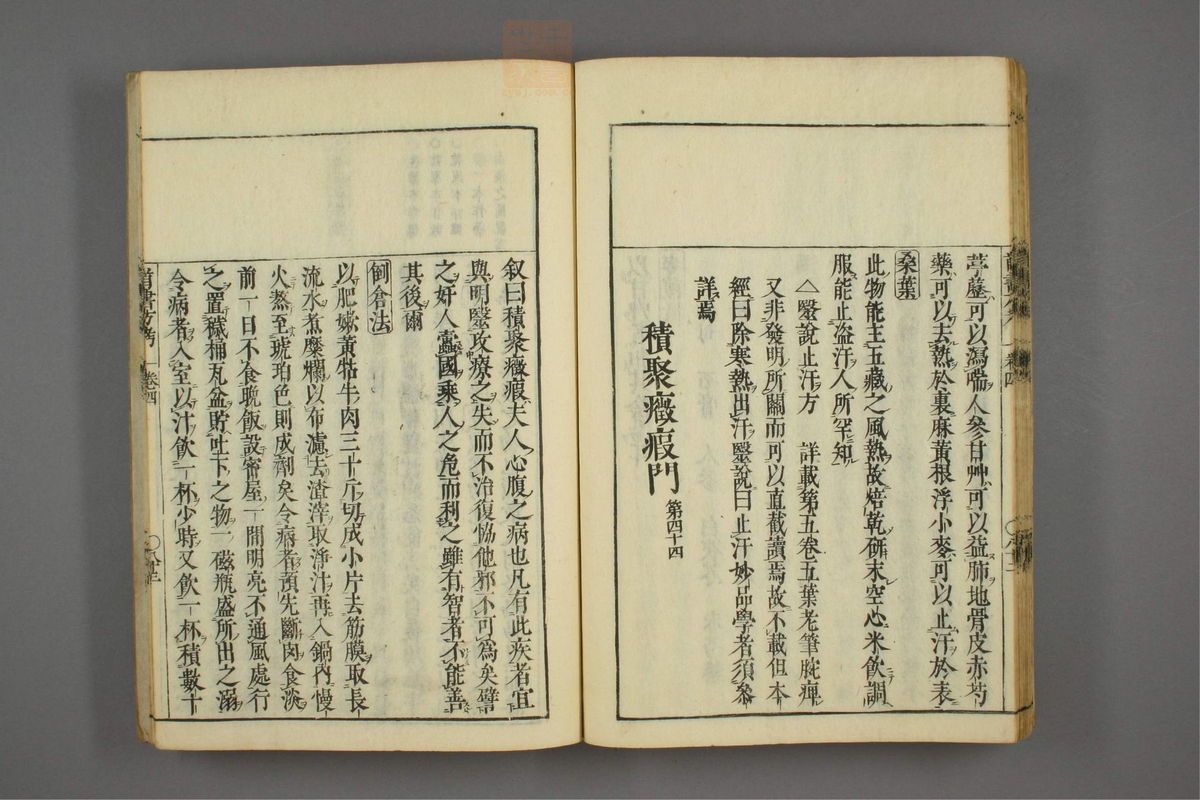 葶藶可以瀉喘人參甘艸可以益肺地骨皮赤芍
藥可以去熱於裏麻黃根浮小麥可以止汗於表
桑葉
此物能主五藏之風熱故焙乾研末空心米飲調
服能止盜汗人所罕知
△毉說止汗方 詳載第五卷五葉老筆腕痺
又非發明所關而可以直截讀焉故不載但本
經曰除寒熱出汗毉說曰止汗妙品學者須參
詳焉
積聚癥瘕門 第四十四
叙曰積聚癥瘕夫人心腹之病也凡有此疾者宜
與明毉攻療之失而不治復恊他邪不可為矣譬
之奸人蠹國乘人之危而利之雖有智者不能善
其後爾
倒倉法
以肥嫩黃牯牛肉三十斤切成小片去筋膜取長
流水煮糜爛以布濾去渣滓取淨汁再入鍋內慢
火熬至琥珀色則成劑矣令病者預先斷肉食淡
前一日不食晚飯設密屋一間明亮不通風處行
之置穢桶瓦盆貯吐下之物一磁瓶盛所出之溺
令病者入室以汁飲一杯少時又飲一杯積數十
卷四
卷四